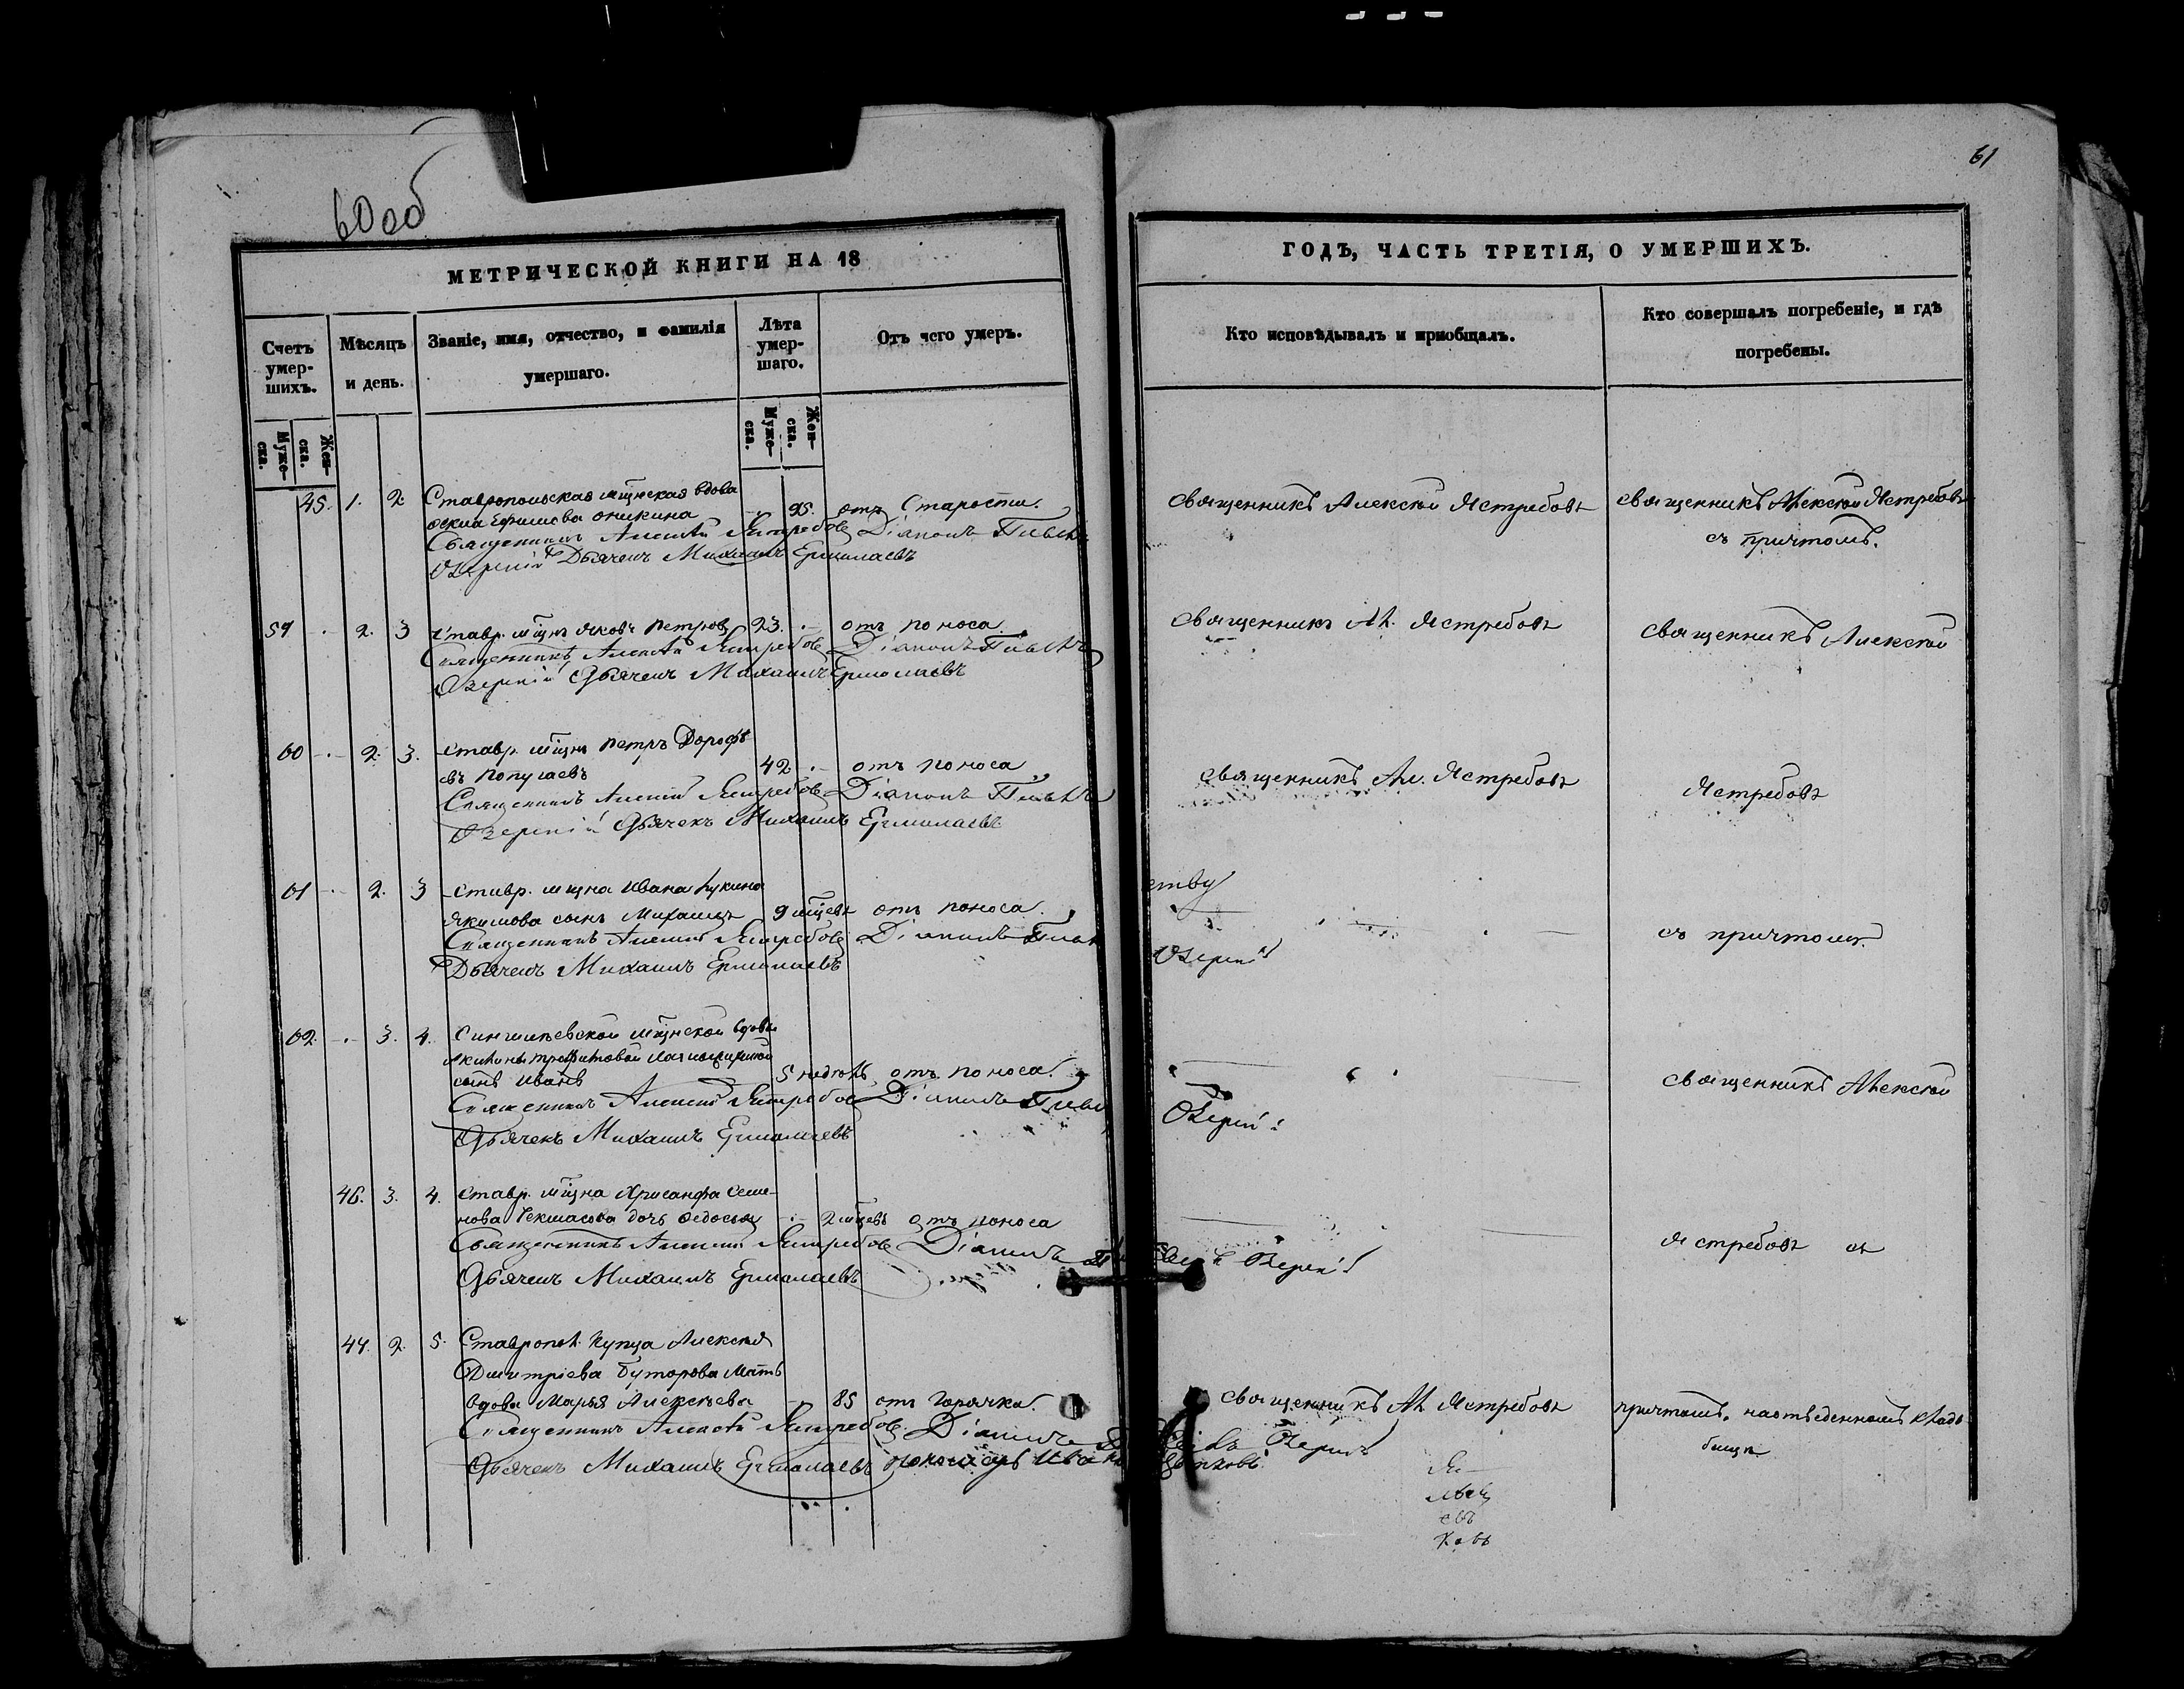 60 об
61
МЕТРИЧЕСКОЙ КНИГИ НА 18
ГОДЪ, ЧАСТЬ ТРЕТІЯ, О УМЕРШИХЪ.
Счетъ умер-шихъ.
Мѣсяцъ и день.
Званіе, имя, отчество, и фамилія умершаго.
Лѣта умер-шаго.
Отъ чего умеръ.
Кто исповѣдывалъ и приобщалъ.
Кто совершалъ погребеніе, и гдѣ погребены.
Муже-ска.
Жен-ска.
Муже-ска.
Жен-ска.
45. 1. 2. Ставропольская мѣщнская вдова
Ефимова Оникина 95. отъ Старости.
Священникъ Алексѣй Ястребовъ
Священникъ Алексѣй Ястребовъ
съ причтомъ.
Священникъ Алексѣй Ястребовъ Діаконъ
Озерскій Дьячекъ Михаилъ Ермолаевъ
59 2. 3 Ставр. мѣщнъ Яковъ Петровъ 23. отъ поноса.
Священникъ Ал. Ястребовъ
Священникъ Алексѣй
Священникъ Алексѣй Ястребовъ Діаконъ
Озерскій Дьячекъ Михаилъ Ермолаевъ
60 2. 3. Ставр. мѣщнъ Петръ Дорофѣ
евъ Попугаевъ 42 отъ поноса
Священникъ Ал. Ястребовъ
Ястребовъ
Священникъ Алексѣй Ястребовъ Діаконъ
Озерскій Дьячекъ Михаилъ Ермолаевъ
61 2. 3 Ставр. мщна Ивана Лукина
Якимова сынъ Михаилъ 9 мѣцевъ отъ поноса.
съ причтомъ.
Священникъ Алексѣй Ястребовъ Діаконъ
Озерскій
Дьячекъ Михаилъ Ермолаевъ
62. 3. 4. Сингилѣевской мѣщнской вдовы
сынъ Иванъ 5 недѣль отъ поноса.
Священникъ Алексѣй
Священникъ Алексѣй Ястребовъ Діаконъ
Озерскій
Дьячекъ Михаилъ Ермолаевъ
46. 3. 4. Ставр. мѣщна Хрисанфа Семе-
нова Чекмасова дочь Федосья 2 мѣцевъ отъ поноса
Ястребовъ съ
Священникъ Алексѣй Ястребовъ Діаконъ Озерскій
Дьячекъ Михаилъ Ермолаевъ
47. 2. 5. Ставропол. купца Алексѣя
Дмитріева Буторова мать
вдова Марья Алексѣева 85 отъ горячки.
Священникъ Ал. Ястребовъ
причтомъ. на отведенномъ кладбищѣ
Священникъ Алексѣй Ястребовъ Діаконъ Озерскій
Дьячекъ Михаилъ Ермолаевъ пономарь Иванъ